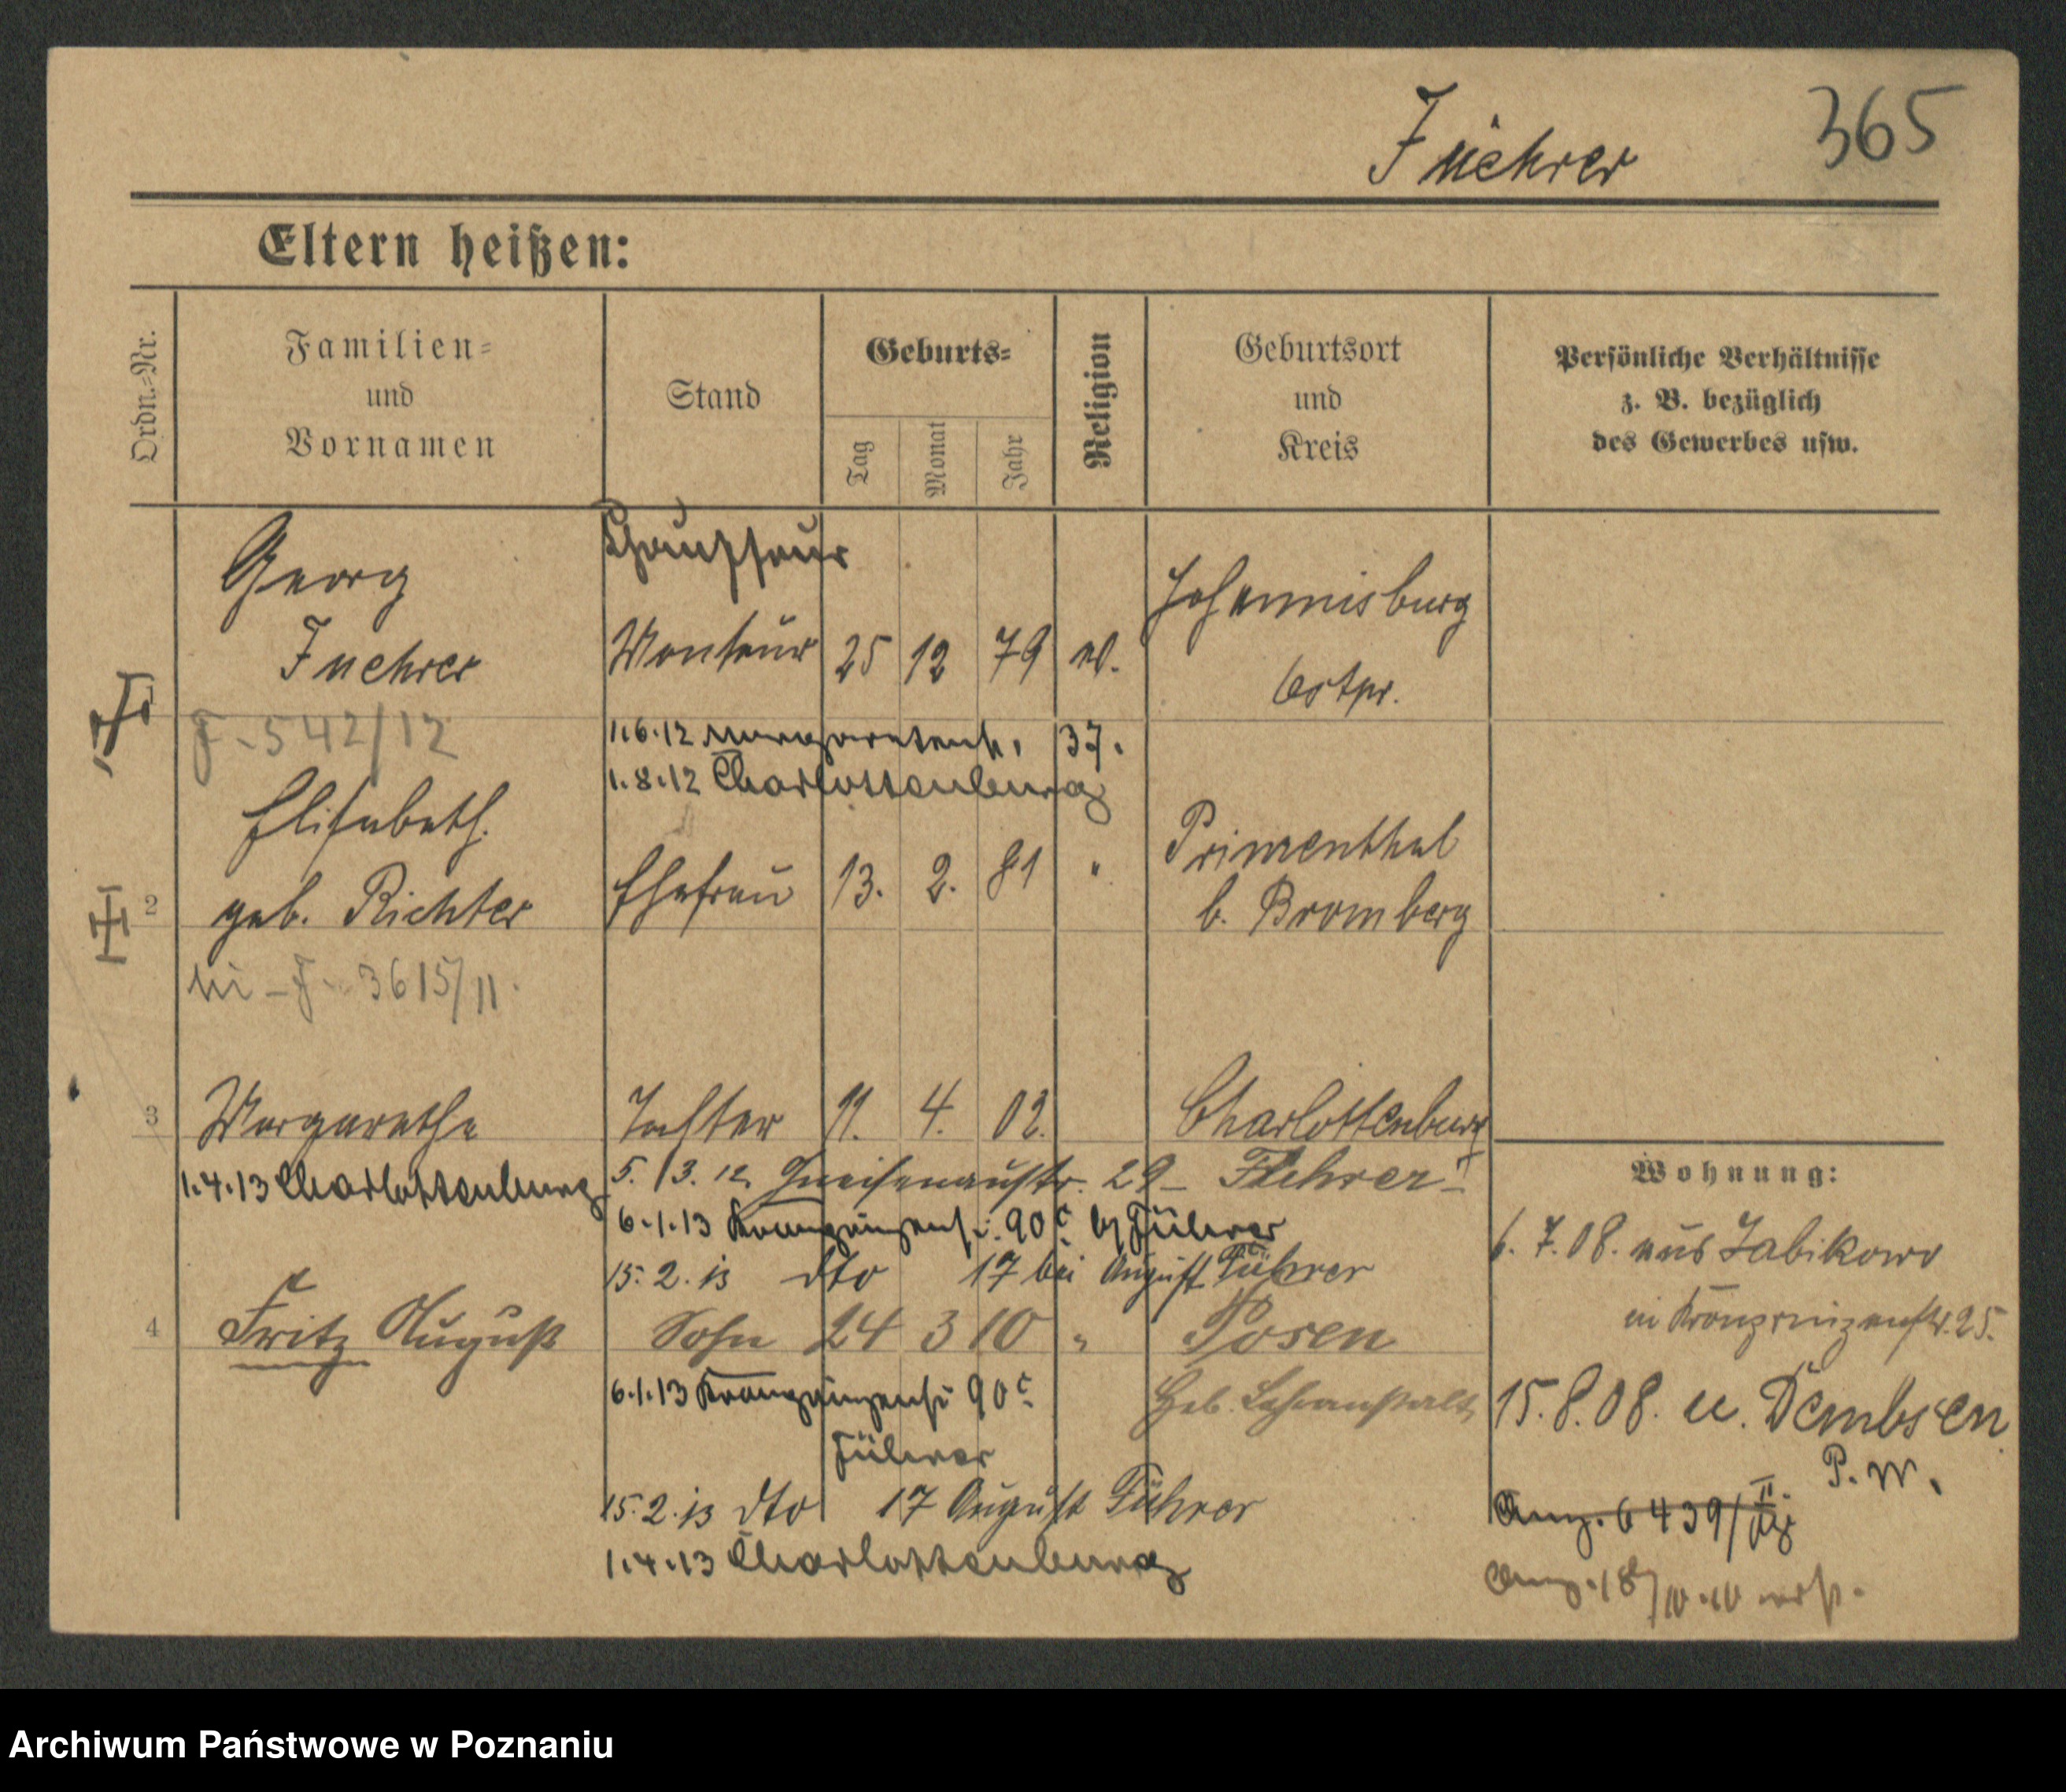 Fuehrer 365
Eltern heißen:
Ordn.=Nr.
Familien=
und
Vornamen
Stand
Geburts=
Tag
Monat
Jahr
Religion
Geburtsort
und
Kreis
Persönliche Verhältnisse
z. B. bezüglich
des Gewerbes usw.
Chauffeur
Georg
Fuehrer
Monteur 25 12 79 ev.
Johannisburg
Ostpr.
F-542/12
1.6.12 Margaretenstr. 37.
1.8.12 Charlottenburg
2
Elisabeth
geb. Richter
Ehefrau 13. 2. 81 "
Primenthal
b. Bromberg
F 3615/11.
3 Margarethe Tochter 11. 4. 02. Charlottenburg
1.4.13 Charlottenburg
5. 3. 12. Gneisenaustr. 29 - Führer
6.1.13 Kronprinzenstr. 90c Führer
15.2.13 dto 17 bei August Führer
4 Fritz August Sohn 24 3 10 " Posen
Heb. Lehranstalt
6.1.13 Kronprinzenstr 90c
Führer
15.2.13 dto 17 August Führer
1.4.13 Charlottenburg
Wohnung:
6. 7. 08. aus Zabikowo
in Kronprinzenstr. 25.
15. 8. 08. u. Dembsen
P. W.
Anz. 6439/II
Anz. 18/IV.10
Archiwum Państwowe w Poznaniu